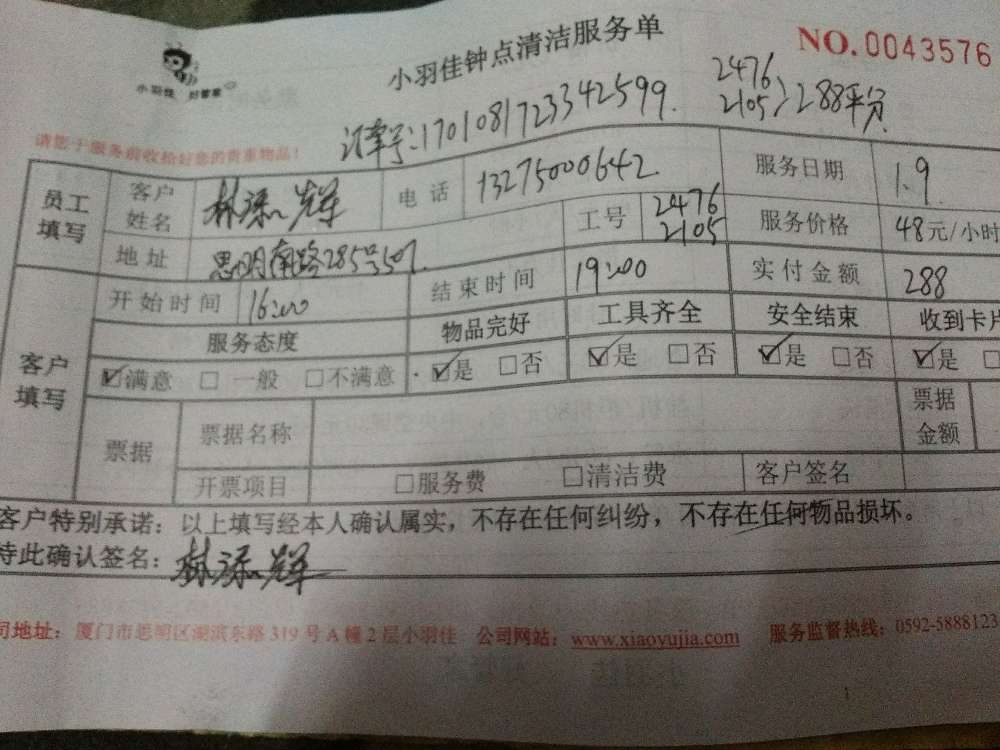 小羽佳 好管家
小羽佳钟点清洁服务单
NO.0043576
请您于服务前收拾好您的贵重物品！
订单号：170108172334 2599.
2476
2105 > 288平分
员工填写 客户姓名 林添辉 电话 13275000642 服务日期 1.9
地址 思明南路285号507. 工号 2476 2105 服务价格 48元/小时
客户填写 开始时间 16:00 结束时间 19:00 实付金额 288
服务态度 物品完好 工具齐全 安全结束 收到卡片
☑满意 □一般 □不满意 ☑是 □否 ☑是 □否 ☑是 □否 ☑是 □
票据 票据名称 票据金额
开票项目 □服务费 □清洁费 客户签名
客户特别承诺：以上填写经本人确认属实，不存在任何纠纷，不存在任何物品损坏。
特此确认签名：林添辉
司地址：厦门市思明区湖滨东路319号A幢2层小羽佳 公司网站：www.xiaoyujia.com 服务监督热线：0592-5888123